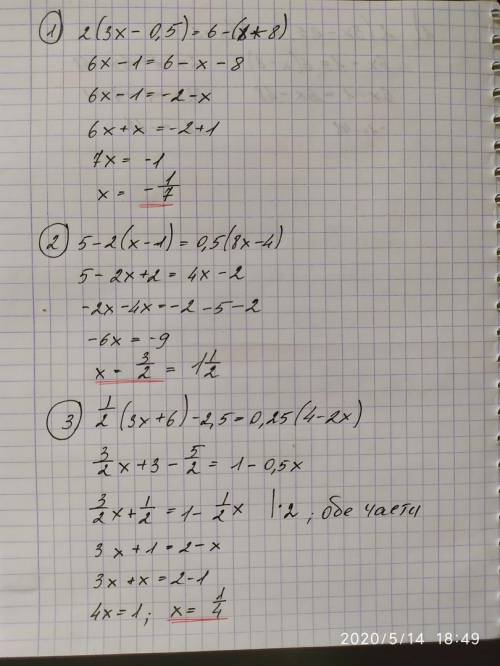 ① 2(3x - 0,5) = 6 - (x - 8)
6x - 1 = 6 - x - 8
6x - 1 = -2 - x
6x + x = -2 + 1
7x = -1
x = -1/7
② 5 - 2(x - 1) = 0,5(8x - 4)
5 - 2x + 2 = 4x - 2
-2x - 4x = -2 - 5 - 2
-6x = -9
x = 3/2 = 1 1/2
③ 1/2 (3x + 6) - 2,5 = 0,25(4 - 2x)
3/2 x + 3 - 5/2 = 1 - 0,5x
3/2 x + 1/2 = 1 - 1/2 x |·2 ; обе части
3x + 1 = 2 - x
3x + x = 2 - 1
4x = 1; x = 1/4
2020/5/14 18:49